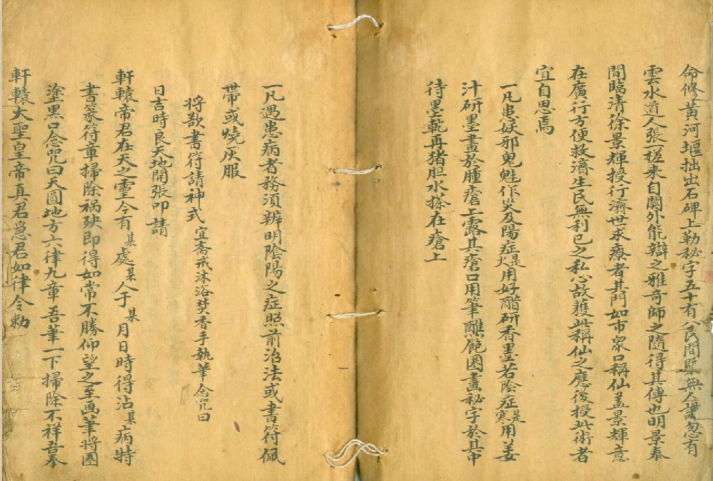 命修黃河堰拙出石碑上勒秘字五十有一民間槩無人識忽有
雲水道人張一槎来自関外能辯之雅奇師之隨得其傳也明景泰
間臨清徐景輝授行濟世求療者其門如市衆口稱仙盖景輝意
在廣行方便救濟生民無利己之私心故獲此稱仙之應後授此術者
宜自思焉
一凡患妖邪鬼魅作灾及陽症是火用好醋研香墨若陰症是寒用姜
汁研墨畫於腫瘡上露其瘡口用筆蘸範圍畫秘字於其中
待墨乾再猪胆水搽在瘡上
一凡遇患病者務須辨明陰陽之症照前治法或書符佩
帶或燒灰服
將欲書符請神式 宜斎戒沐浴焚香手執筆念咒曰
日吉時良天地開張叩請
軒轅帝君在天之靈今有某處某人于某月日時得沾某病特
書篆符章掃除禍殃即得如常不勝仰望之至画筆將圈
塗黒口念咒曰天圓地方六律九章吾筆一下掃除不祥吾奉
軒轅大聖皇帝真君急君如律令勅